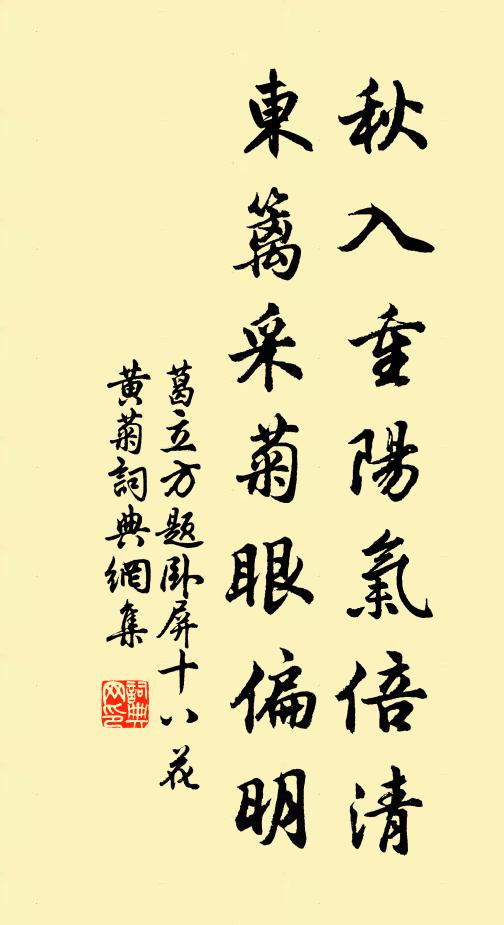 秋入重陽氣倍清
東籬采菊眼偏明
葛立方題卧屏十八花
黃菊詞典網集
詞典网印